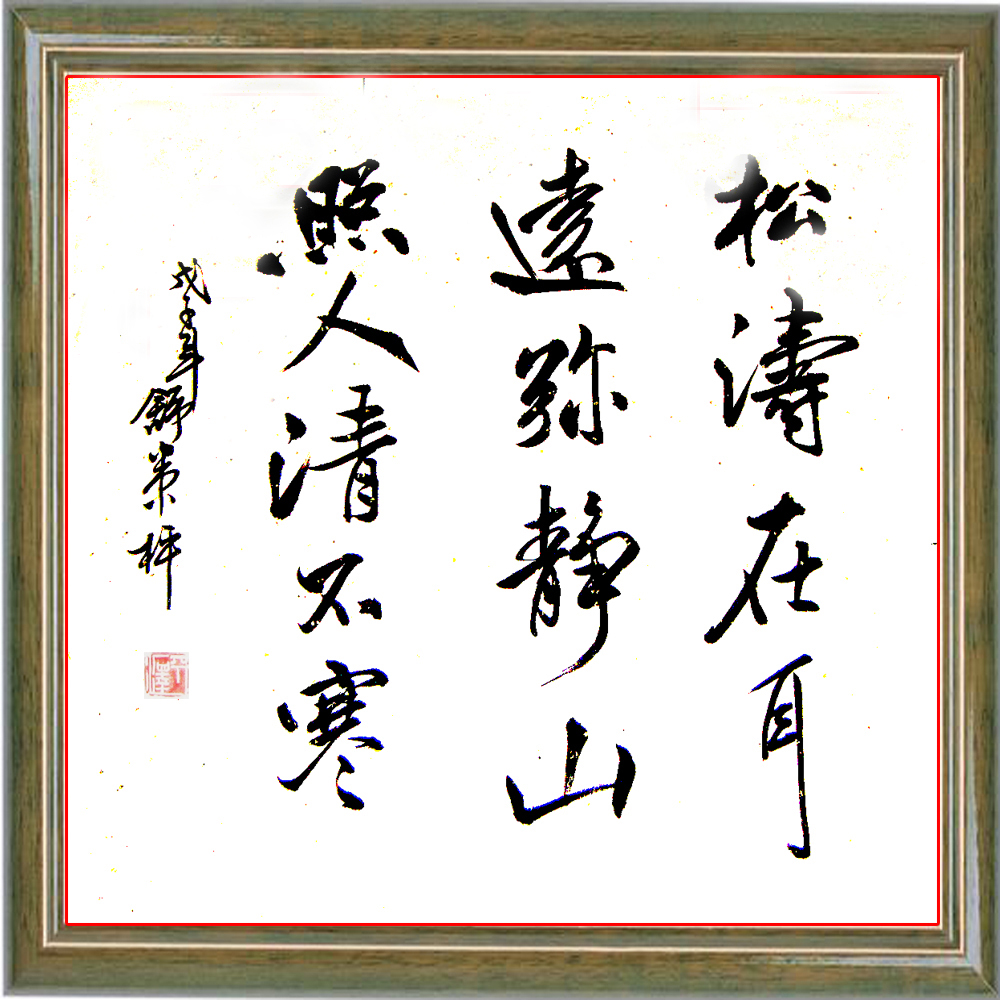 松濤在耳
遠弥静山
照人清不寒
戊子年